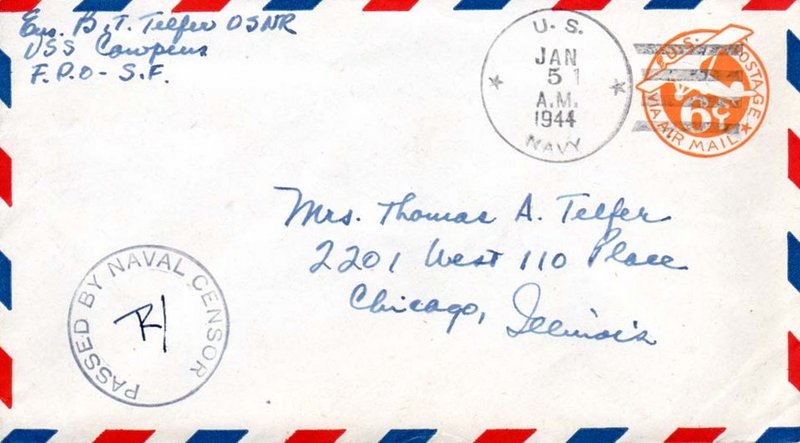 Ens. B. T. Telfer USNR
USS Cowpens
F.P.O - S.F.
U. S.
JAN
5 1
A.M.
1944
NAVY
U.S. POSTAGE
6¢
VIA AIR MAIL
Mrs. Thomas A. Telfer
2201 West 110 Place
Chicago, Illinois
PASSED BY NAVAL CENSOR